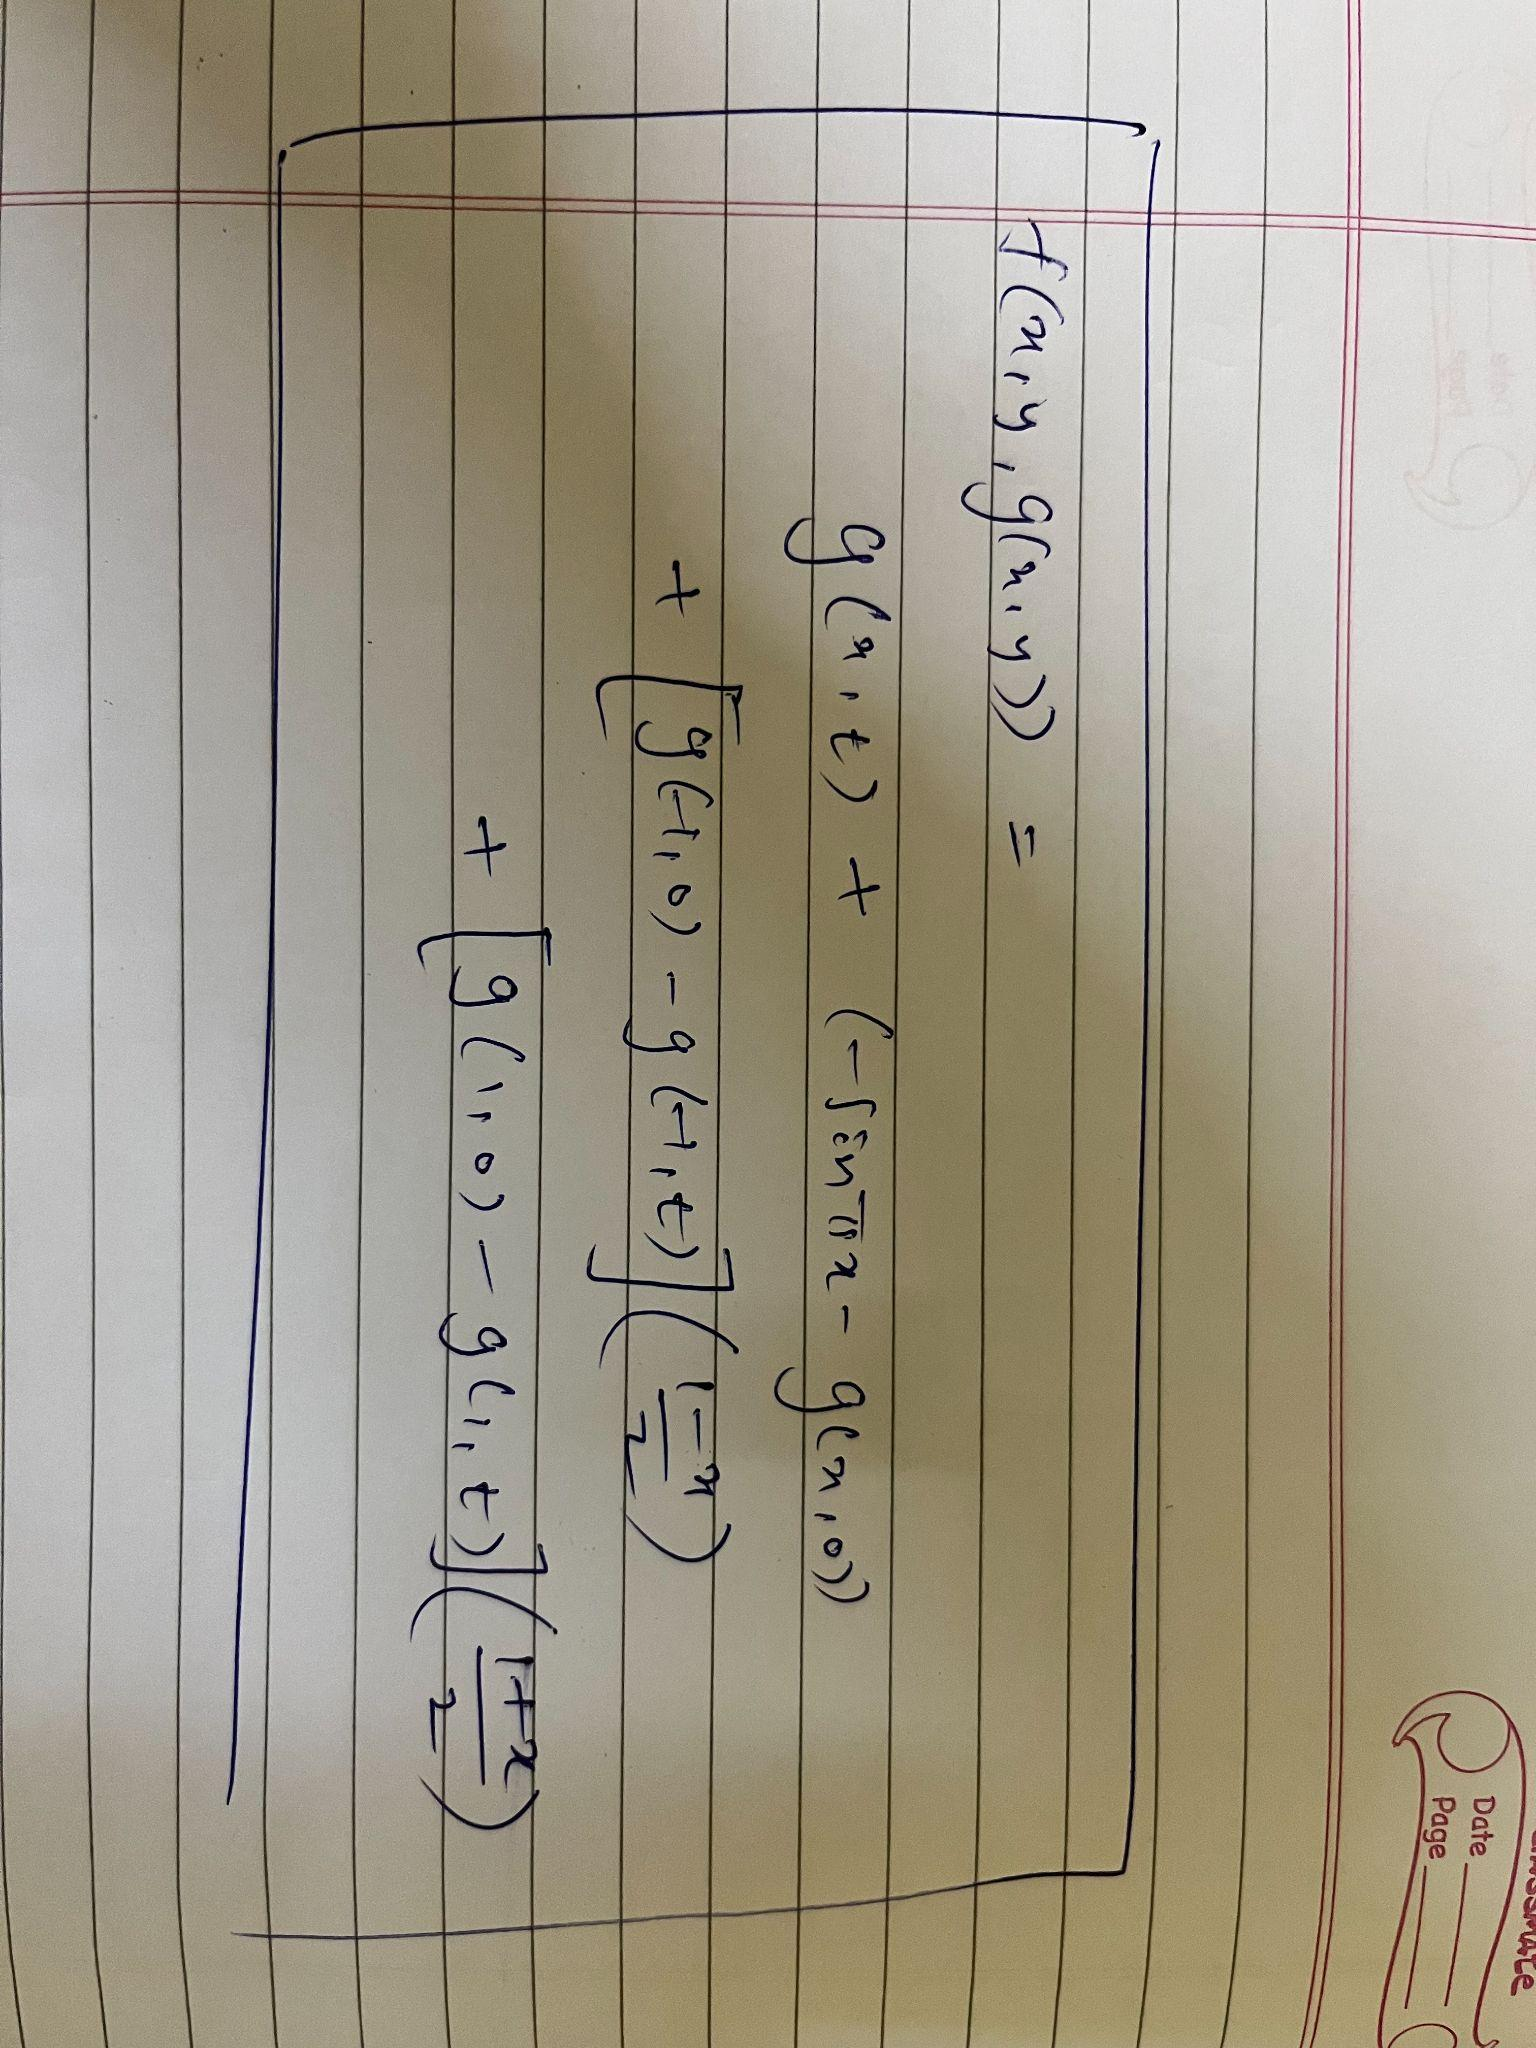 f(x, y, g(x, y)) =
g(x, t) + (-sin πx - g(x, 0))
+ [g(-1, 0) - g(-1, t)] (1-x/2)
+ [g(1, 0) - g(1, t)] (1+x/2)
Date
Page